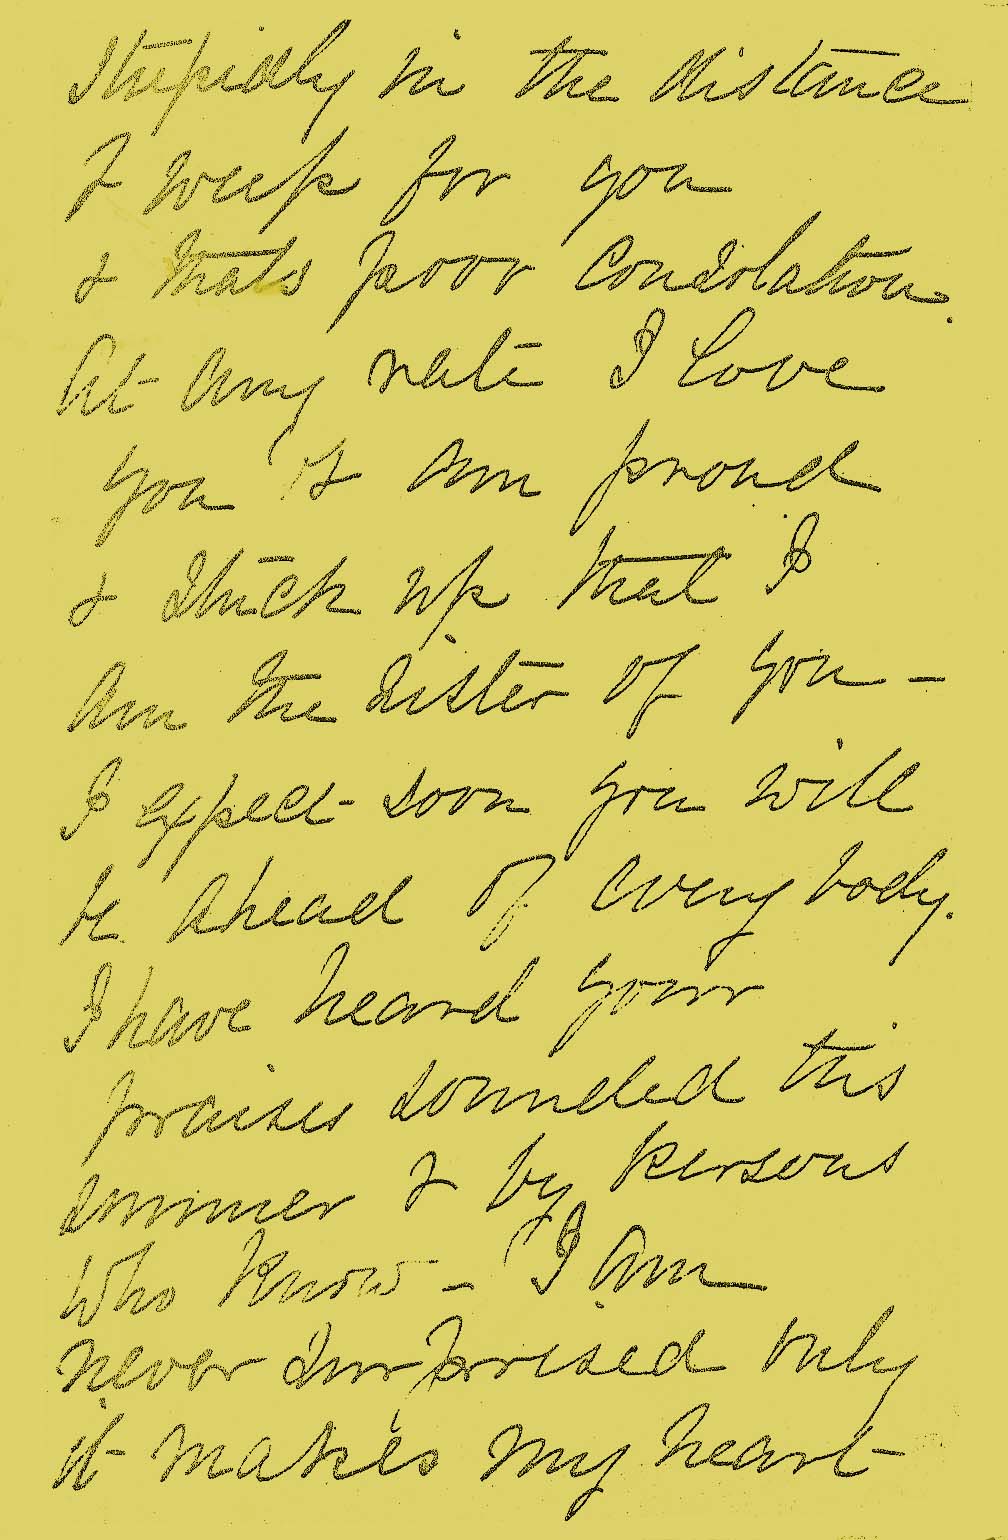 Stupidly in the distance
I weep for you
& thats poor consolation.
At any rate I love
you & am proud
& stuck up that I
am the sister of you –
I expect soon you will
be ahead of every body.
I have heard your
praises sounded this
summer & by persons
who know – I am
never surprised only
it makes my heart